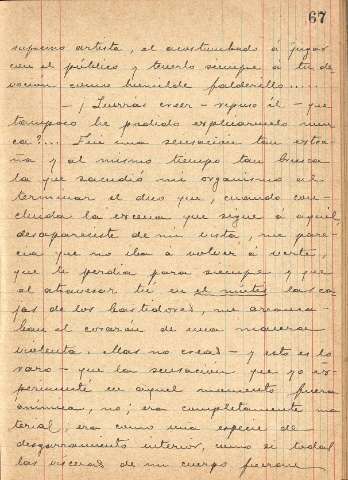 67
supremo artista, el acostumbrado á jugar
con el público y tenerlo siempre á tu de
voción como humilde falderillo...
—¿Querrás creer — repuso él — que
tampoco he podido explicármelo nun
ca?... Fué una sensación tan extra
ña y al mismo tiempo tan brusca
la que sacudió mi organismo al
terminar el duo que, cuando con
cluida la escena que sigue á aquél,
desapareciste de mi vista, me pare
cía que no iba á volver á verte,
que te perdía para siempre y que
al atravesar tú en el mutis las ca
jas de los bastidores, me arranca
ban el corazón de una manera
violenta. Mas no creas — y esto es lo
raro — que la sensación que yo ex
perimenté en aquel momento fuera
anímica, no; era completamente ma
terial, era como una especie de
desgarramiento interior, como si todas
las vísceras de mi cuerpo fueran